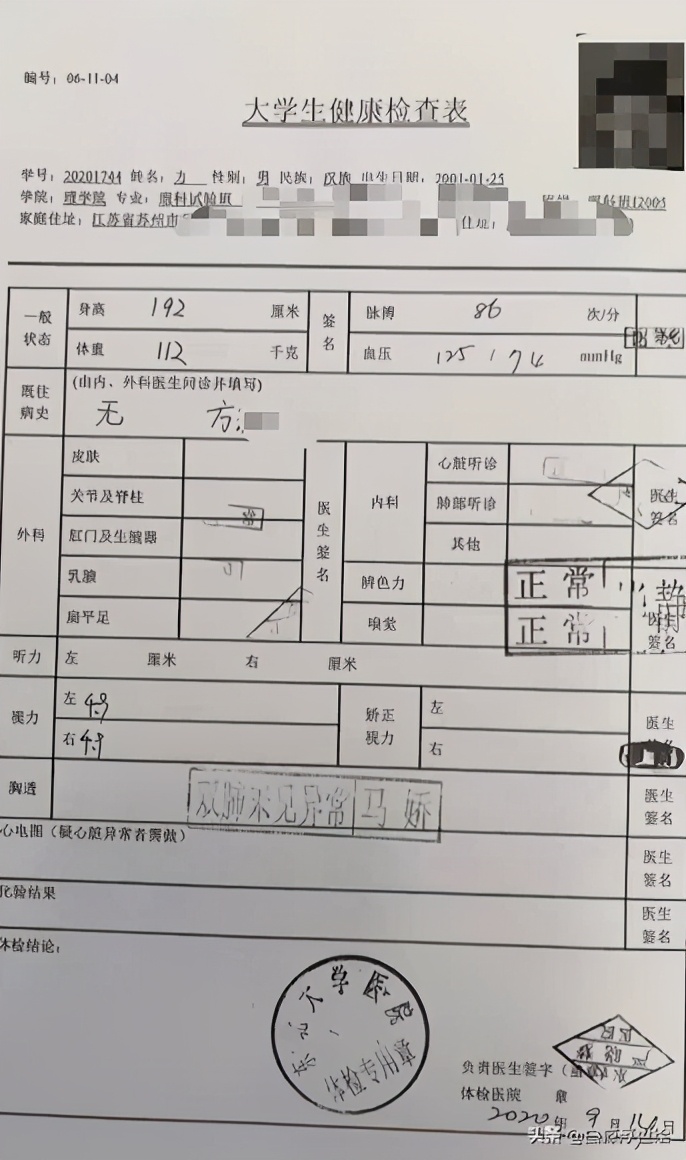 编号：06-11-04
大学生健康检查表
学号：20201744 姓名：方 性别：男 民族：汉族 出生日期：2001-01-25
学院： 专业：
家庭住址：江苏省苏州市 住址：
一般状态 身高 192 厘米 签名 脉搏 86 次/分
体重 112 千克 血压 125 / 74 mmHg
既往病史 (由内、外科医生问诊并填写)
无 方
外科 皮肤 医生签名 内科 心脏听诊 医生签名
关节及脊柱 肺部听诊
肛门及生殖器 其他
乳腺 辨色力 正常 医生签名
扁平足 嗅觉 正常
听力 左 厘米 右 厘米
视力 左 4.9 矫正视力 左 医生
右 4.9 右
胸透 双肺未见异常 马娇 医生签名
心电图（疑心脏异常者需做） 医生签名
化验结果 医生签名
体检结论：
大学医院
体检专用章
负责医生签字（盖
体检医院
2020年 9 月 14 日
头条